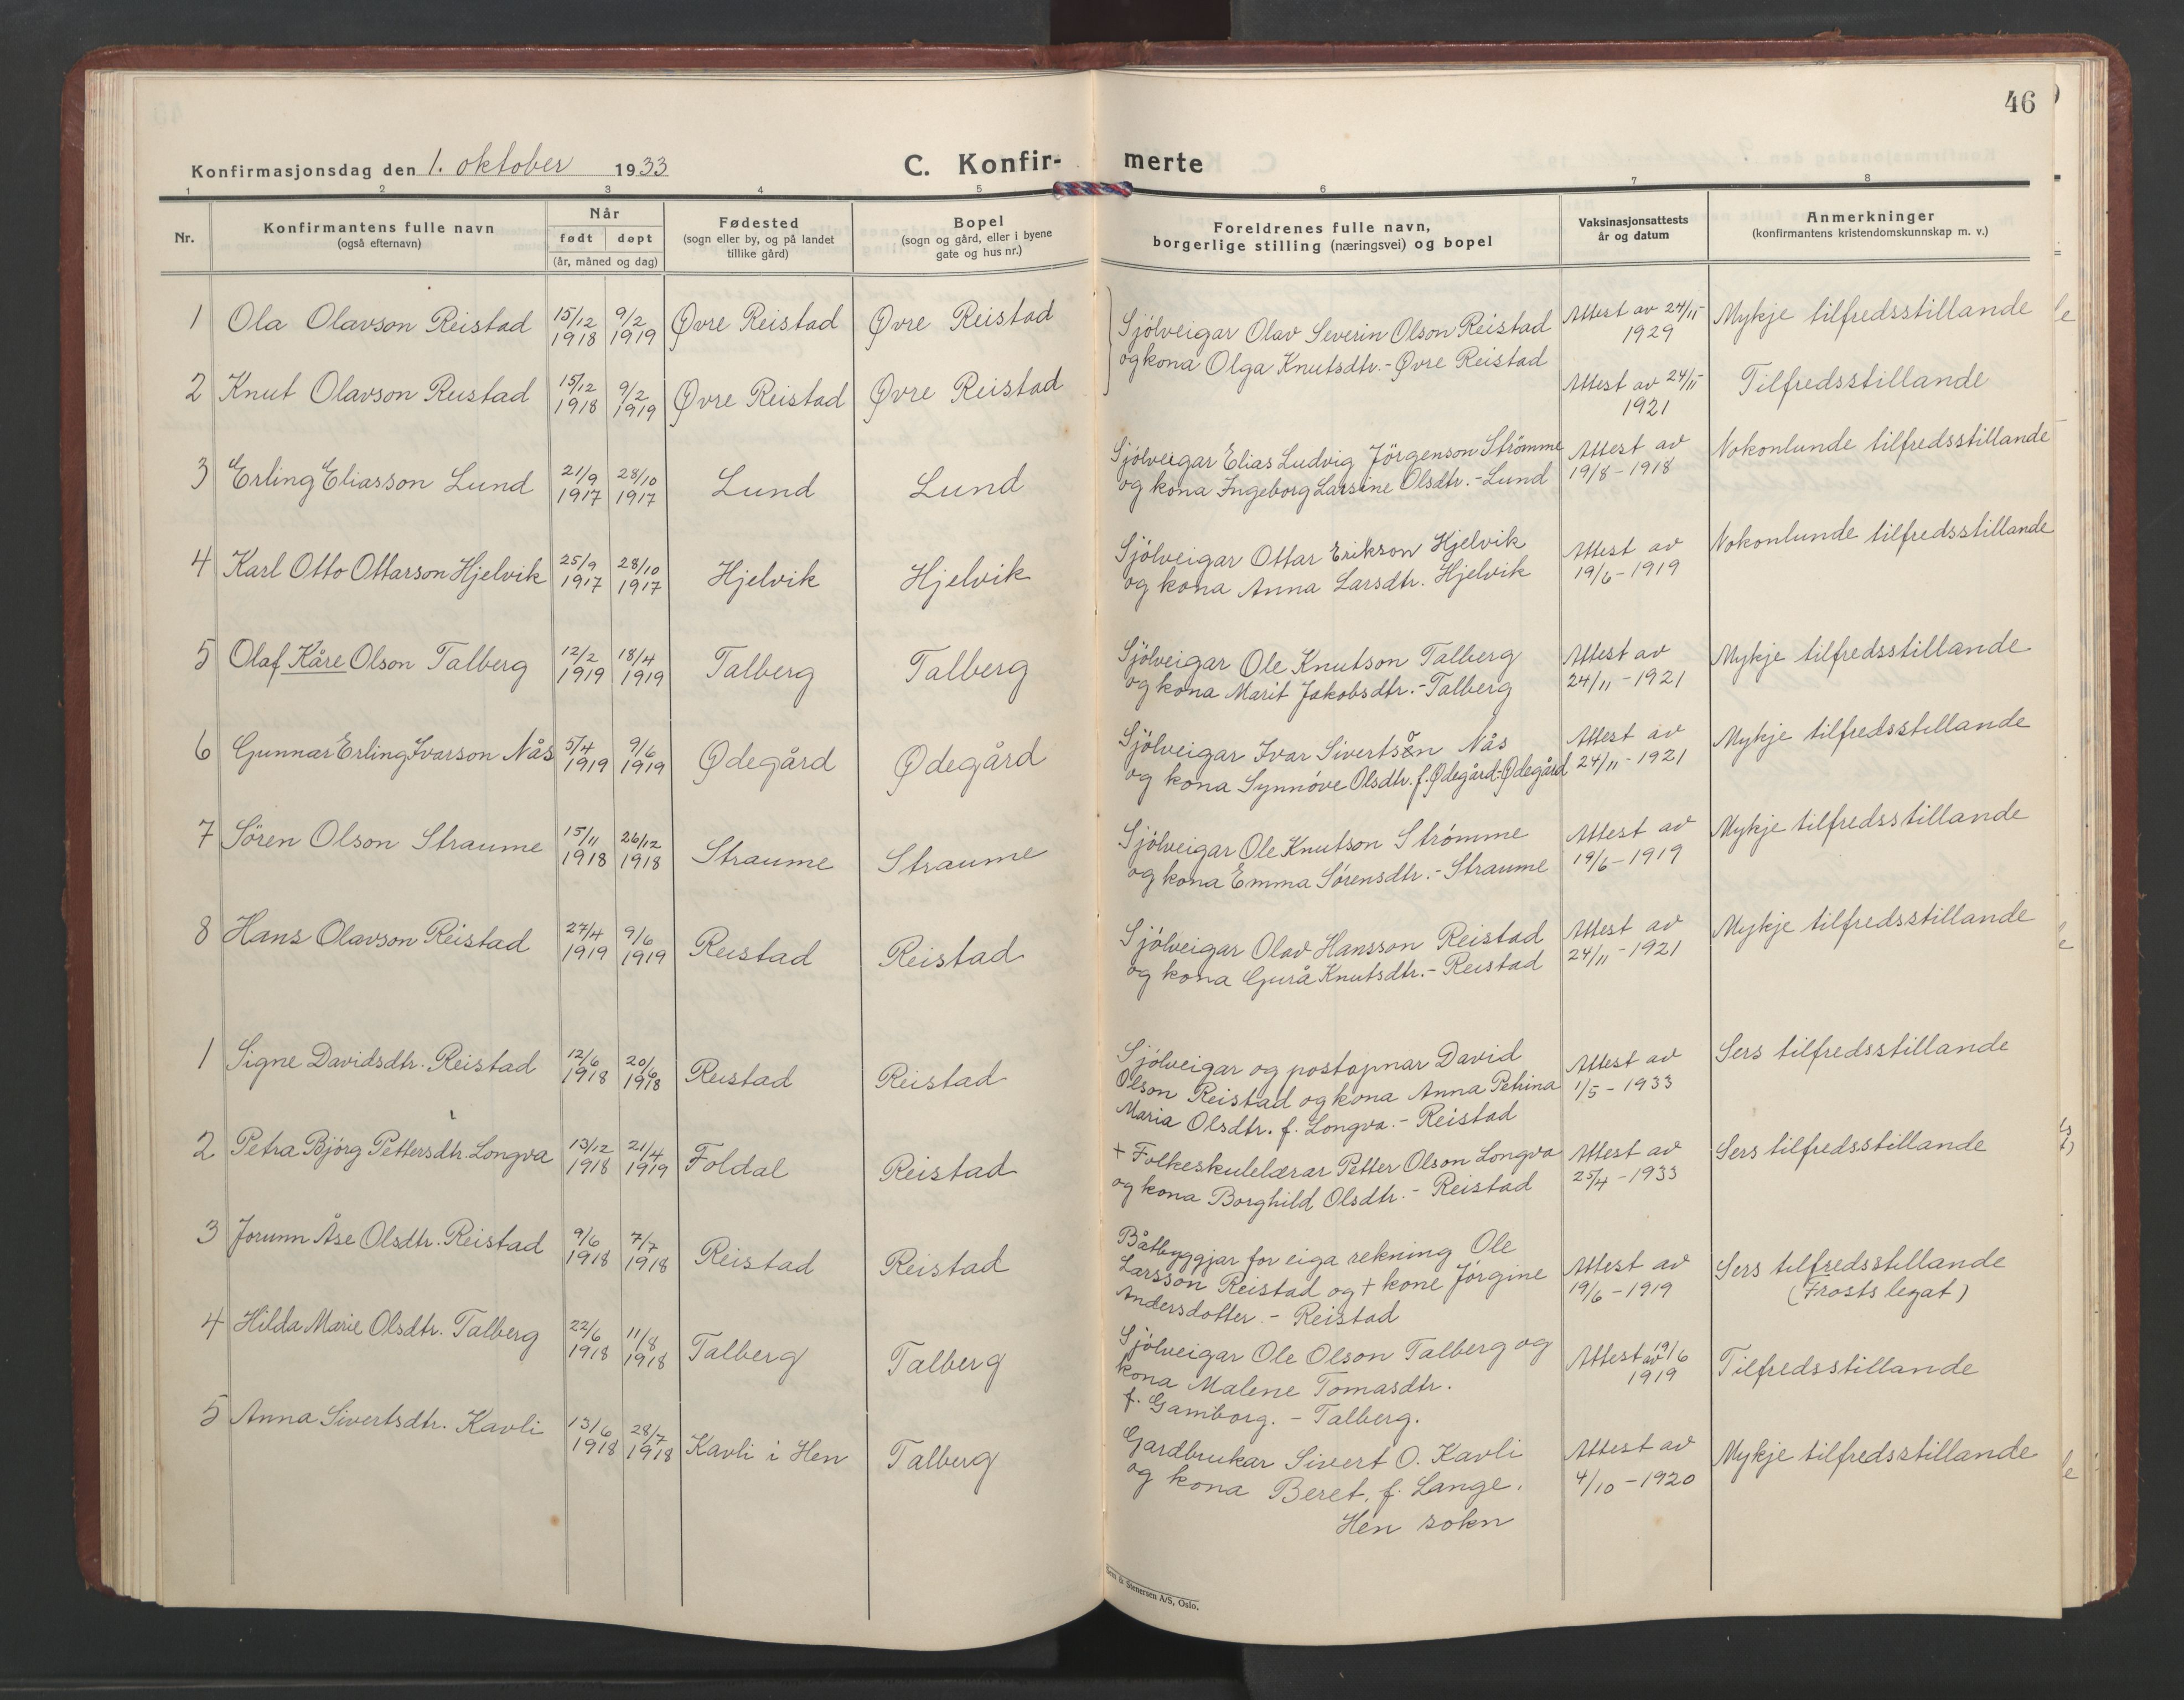 46
Konfirmasjonsdag den 1. oktober 1933
C. Konfir- merte
1 2 3 4 5 6 7 8
Nr.
Konfirmantens fulle navn
(også efternavn)
Når
født døpt
(år, måned og dag)
Fødested
(sogn eller by, og på landet
tillike gård)
Bopel
(sogn og gård, eller i byene
gate og hus nr.)
Foreldrenes fulle navn,
borgerlige stilling (næringsvei) og bopel
Vaksinasjonsattests
år og datum
Anmerkninger
(konfirmantens kristendomskunnskap m. v.)
1 Ola Olavson Reistad 15/12 1918 9/2 1919 Øvre Reistad Øvre Reistad
Sjölveigar Olav Severin Olson Reistad
og kona Olga Knutsdtr. - Øvre Reistad
Attest av 24/11
1929
Mykje tilfredsstillande
2 Knut Olavson Reistad 15/12 1918 9/2 1919 Øvre Reistad Øvre Reistad
Attest av 24/11
1921
Tilfredsstillande
3 Erling Eliasson Lund 21/9 1917 28/10 1917 Lund Lund
Sjölveigar Elias Ludvig Jörgenson Strömme
og kona Ingeborg Larsine Olsdtr. - Lund
Attest av
19/8 - 1918
Nokonlunde tilfredsstillande
4 Karl Otto Ottarson Hjelvik 25/9 1917 28/10 1917 Hjelvik Hjelvik
Sjölveigar Ottar Erikson Hjelvik
og kona Anna Larsdtr. Hjelvik
Attest av
19/6 - 1919
Nokonlunde tilfredsstillande
5 Olaf Kåre Olson Talberg 12/2 1919 18/4 1919 Talberg Talberg
Sjölveigar Ole Knutson Talberg
og kona Marit Jakobsdtr. - Talberg
Attest av
24/11 - 1921
Mykje tilfredsstillande
6 Gunnar Erling Ivarson Nås 5/4 1919 9/6 1919 Ødegård Ødegård
Sjölveigar Ivar Sivertson Nås
og kona Synnöve Olsdtr. f. Ødegård - Ødegård
Attest av
24/11 - 1921
Mykje tilfredsstillande
7 Sören Olson Straume 15/11 1918 26/12 1918 Straume Straume
Sjölveigar Ole Knutson Strömme
og kona Emma Sörensdtr. - Straume
Attest av
19/6 - 1919
Mykje tilfredsstillande
8 Hans Olavson Reistad 27/4 1919 9/6 1919 Reistad Reistad
Sjölveigar Olav Hansson Reistad
og kona Gurå Knutsdtr. - Reistad
Attest av
24/11 - 1921
Mykje tilfredsstillande
1 Signe Davidsdtr. Reistad 12/6 1918 20/6 1918 Reistad Reistad
Sjölveigar og postopnar David
Olson Reistad og kona Anna Petrina
Maria Olsdtr. f. Longva. - Reistad
Attest av
1/5 - 1933
Sers tilfredsstillande
2 Petra Bjórg Pettersdtr. Longva 13/12 1918 21/4 1919 Foldal Reistad
+ Folkeskulelærar Petter Olson Longva
og kona Borghild Olsdtr. - Reistad
Attest av
25/4 - 1933
Sers tilfredsstillande
3 Jorunn Åse Olsdtr. Reistad 9/6 1918 7/7 1918 Reistad Reistad
Båtbyggjar for eiga rekning Ole
Larsson Reistad og + kone Jörgine
Andersdotter. - Reistad
Attest av
19/6 - 1919
Sers tilfredsstillande
(Frosts legat)
4 Hilda Marie Olsdtr. Talberg 22/6 1918 11/8 1918 Talberg Talberg
Sjölveigar Ole Olson Talberg og
kona Malene Tomasdtr.
f. Gamborg. - Talberg.
Attest av 19/6
1919
Tilfredsstillande
5 Anna Sivertsdtr. Kavli 13/6 1918 28/7 1918 Kavli i Hen Talberg
Gardbrukar Sivert O. Kavli
og kona Beret, f. Lange.
Hen sokn
Attest av
4/10 - 1920
Mykje tilfredsstillande
& Stenersen A/S, Oslo.